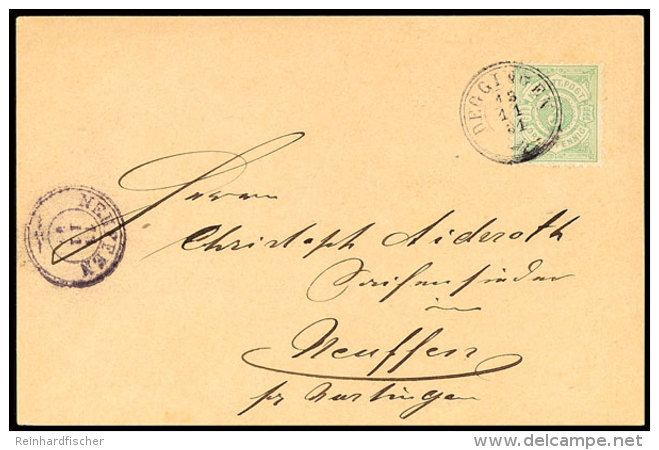 DEGGINGEN
13
11
81
K.WÜRTT.POST
PENNIG
NEUFFEN
Herrn
Christoph Aideroth
Seifensieder
in
Neuffen
pr Nürtingen
Reinhardfischer
delcampe.net